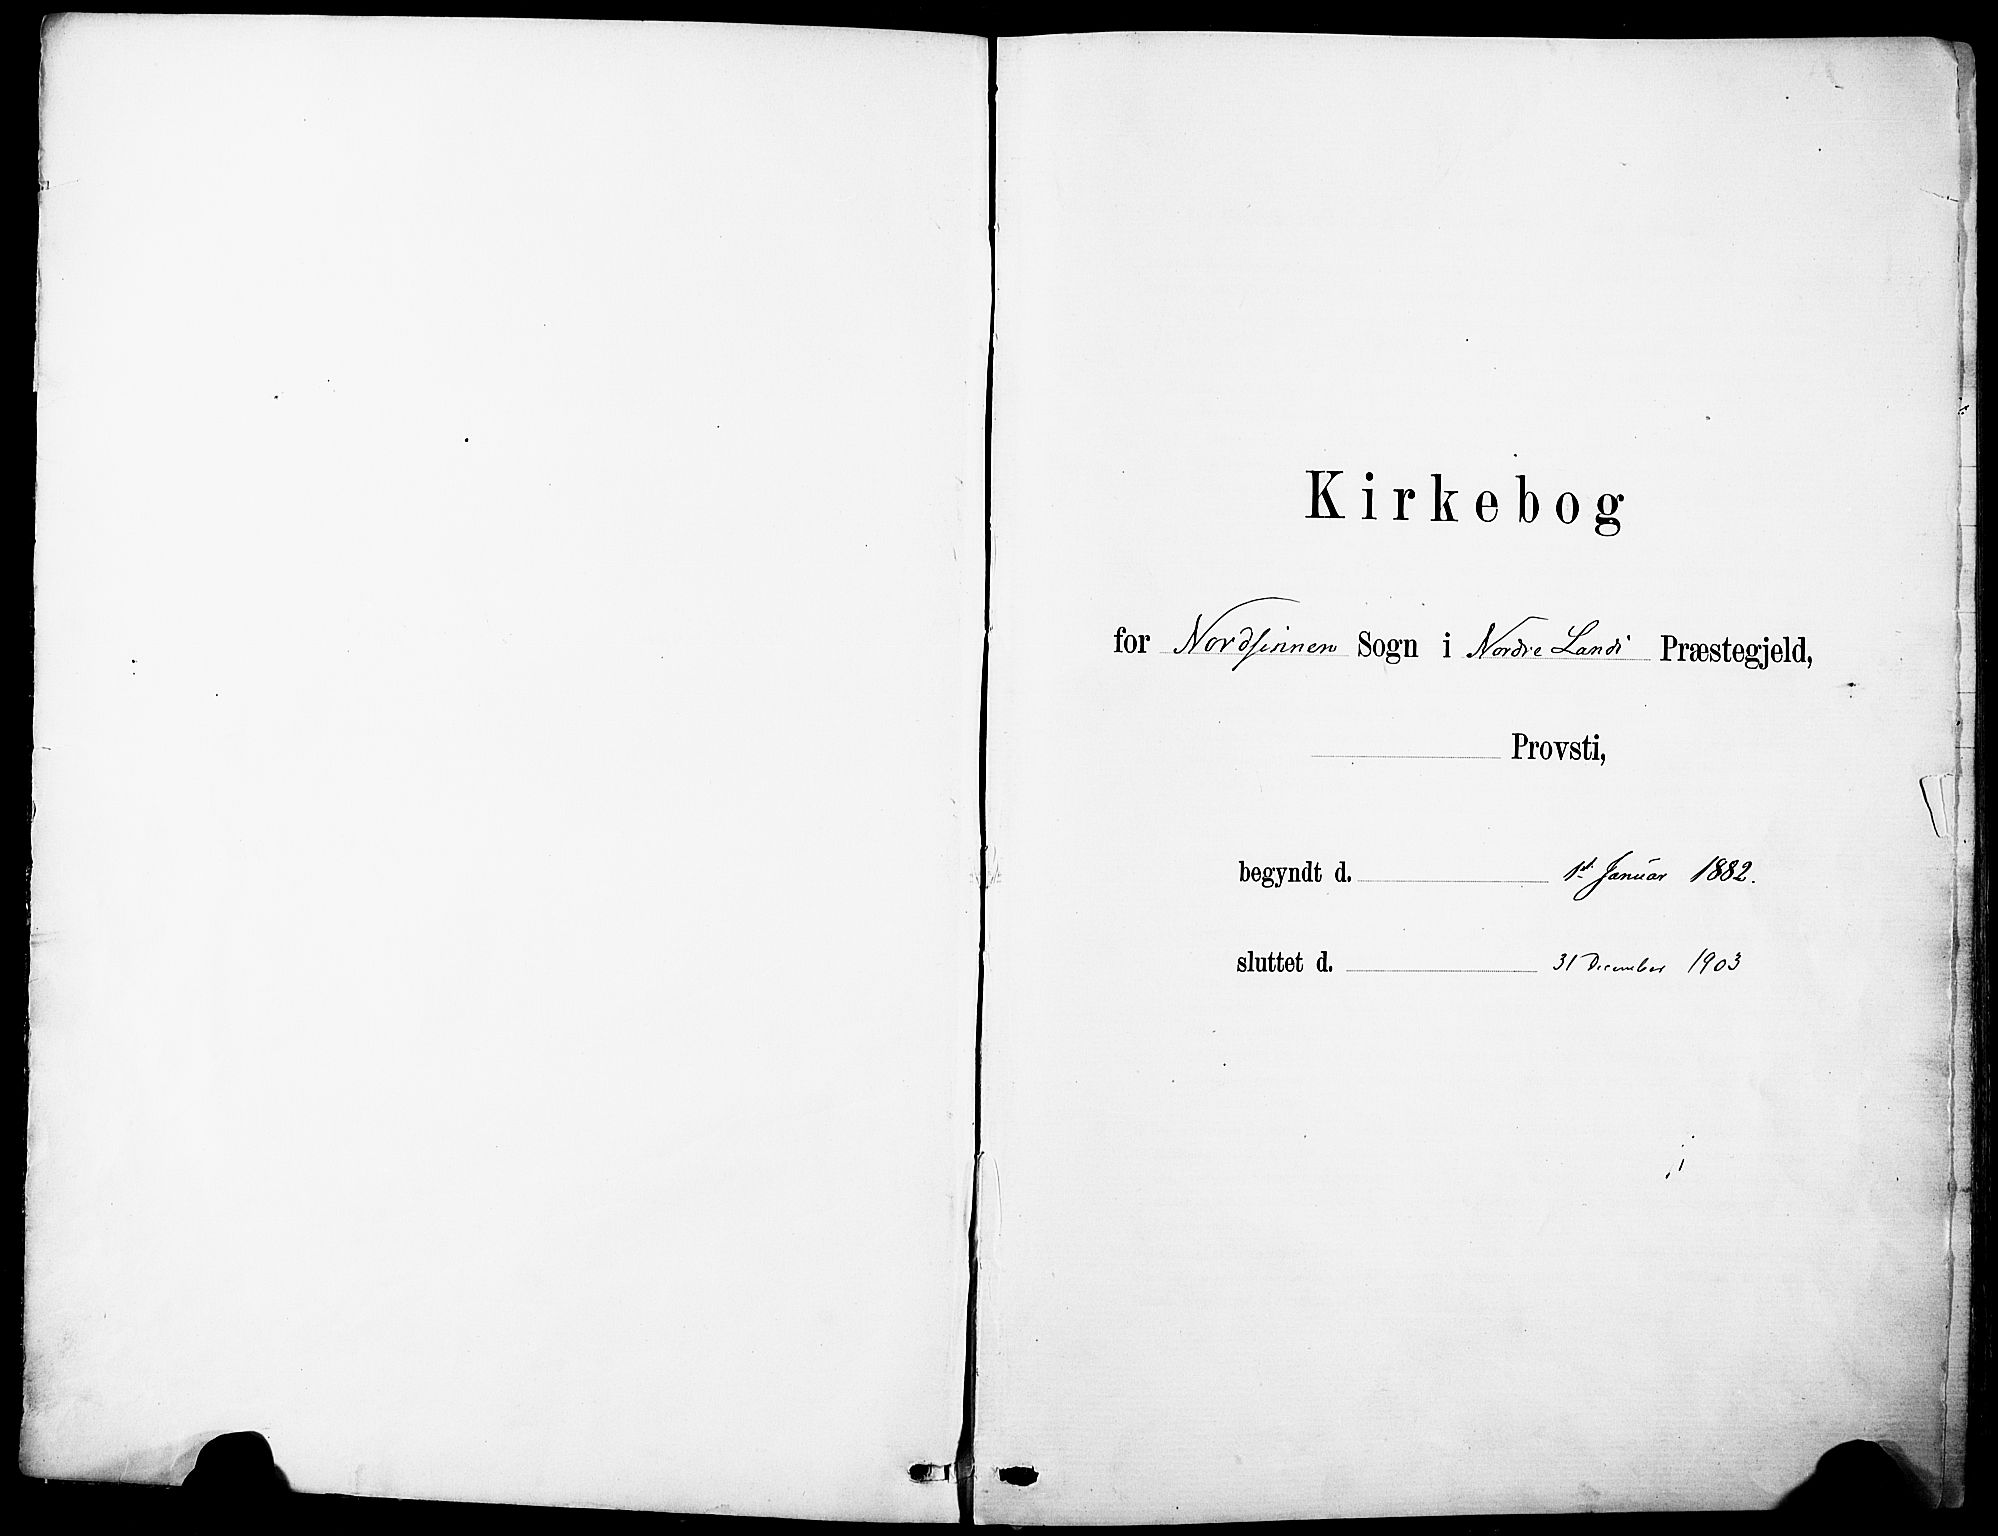 Kirkebog
for Nordsinnen Sogn i Nordre Land Præstegjeld,
Provsti,
begyndt d. 1st Januar 1882.
sluttet d. 31 December 1903